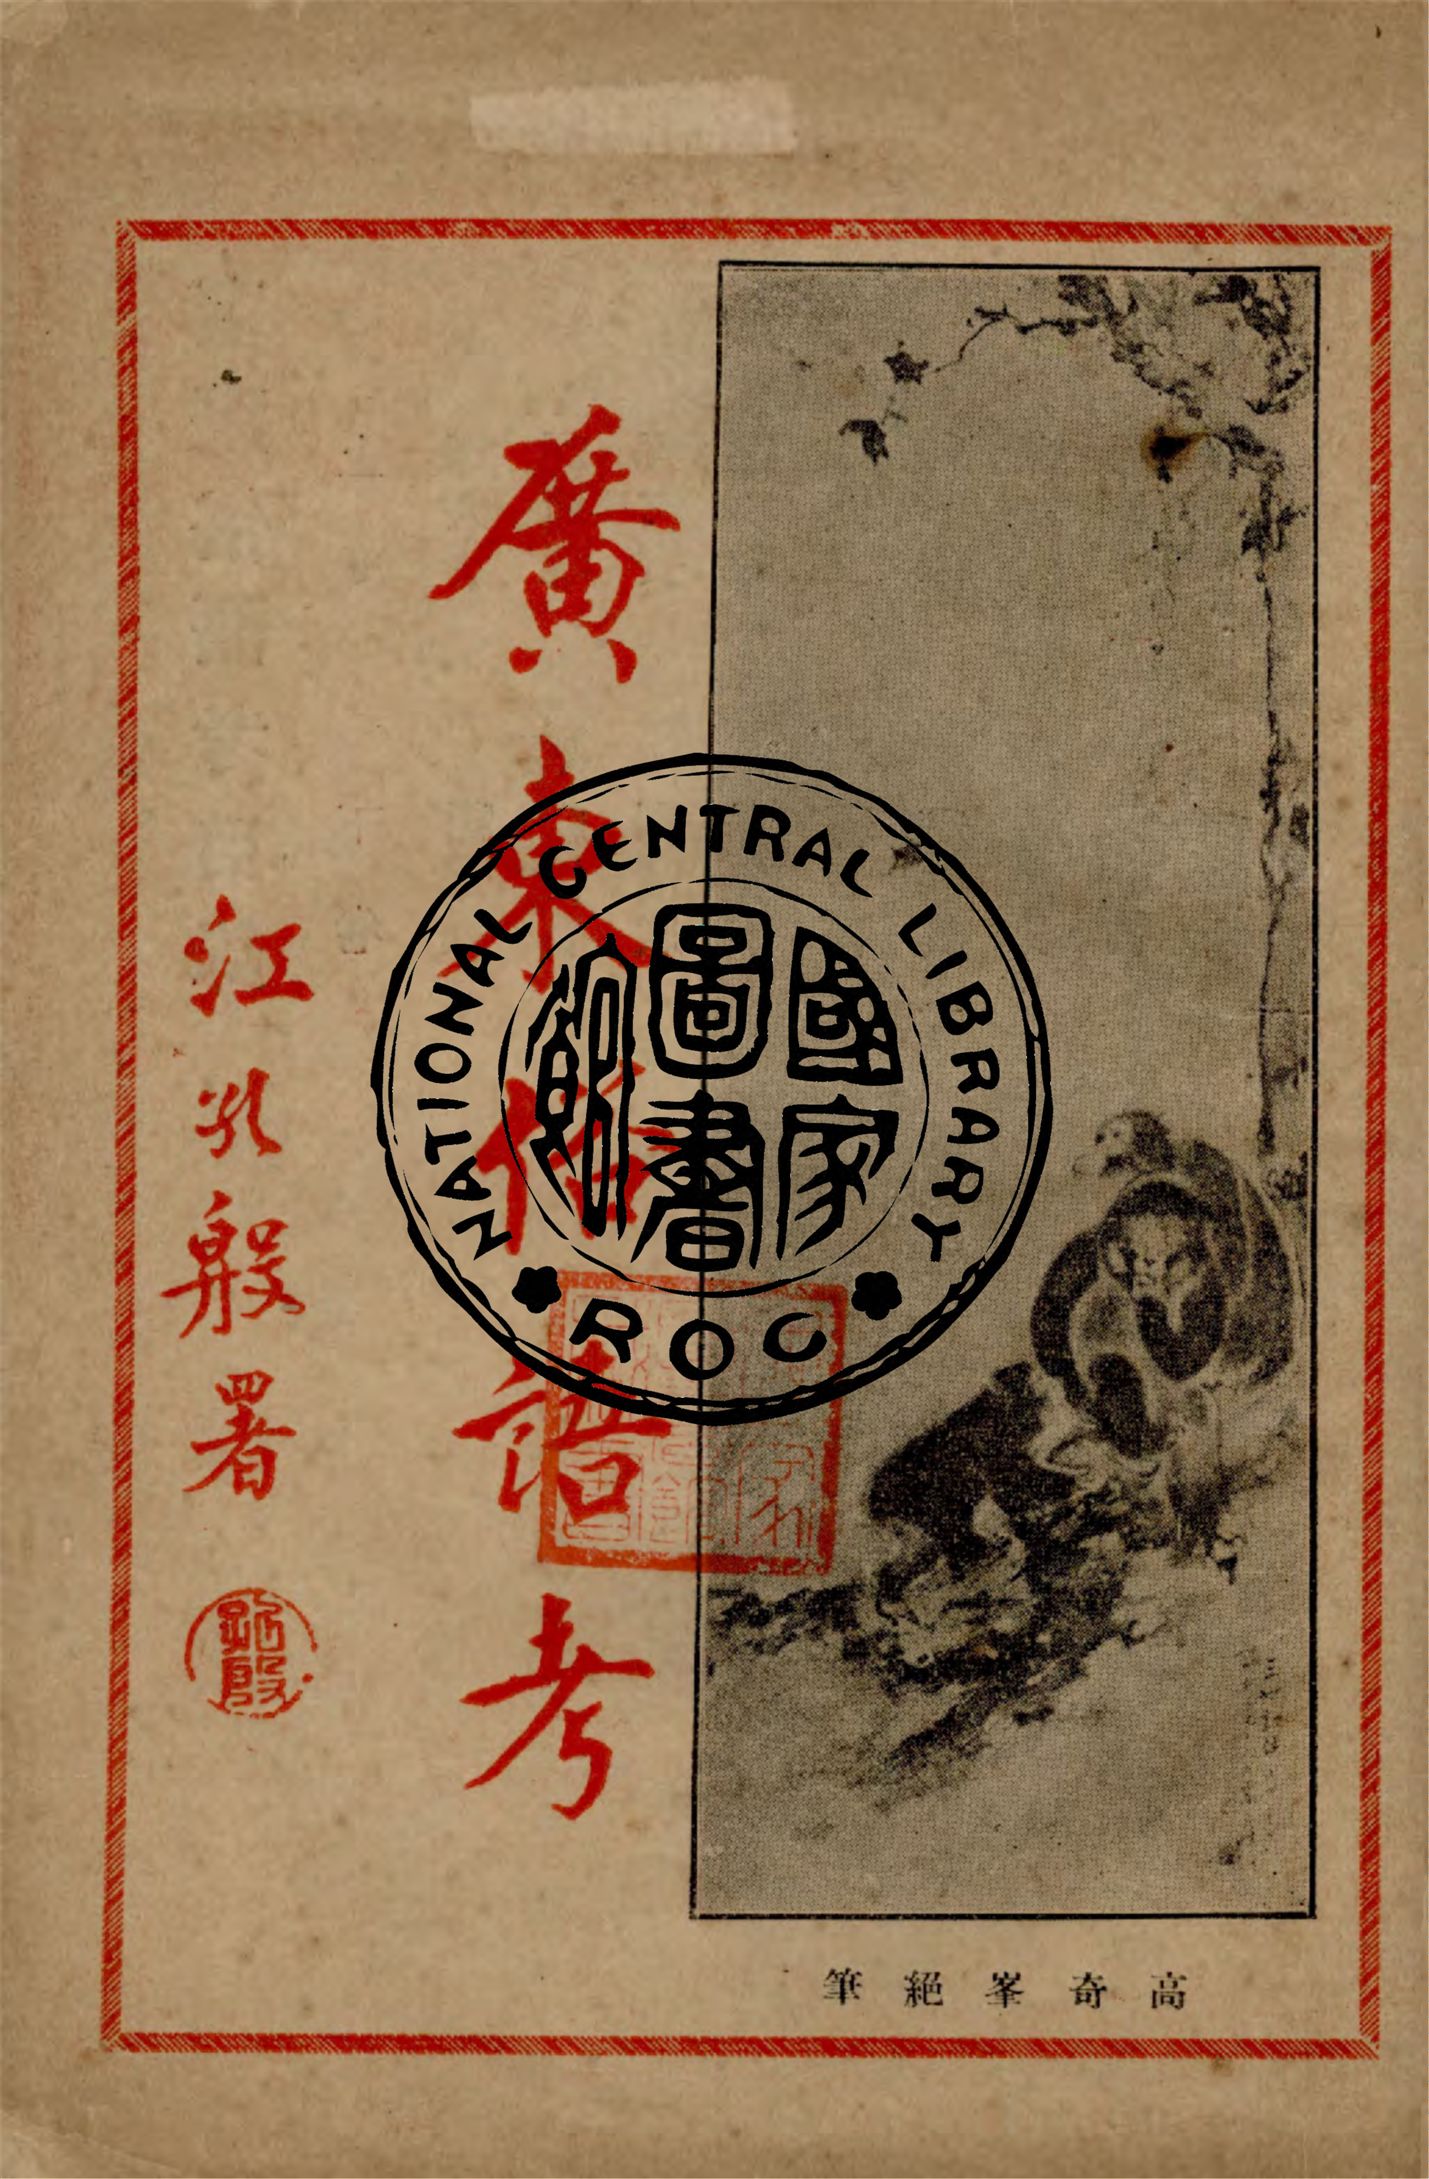 廣東俗語考
江孔殷署
高奇峯絕筆
NATIONAL CENTRAL LIBRARY
ROC
國家圖書館